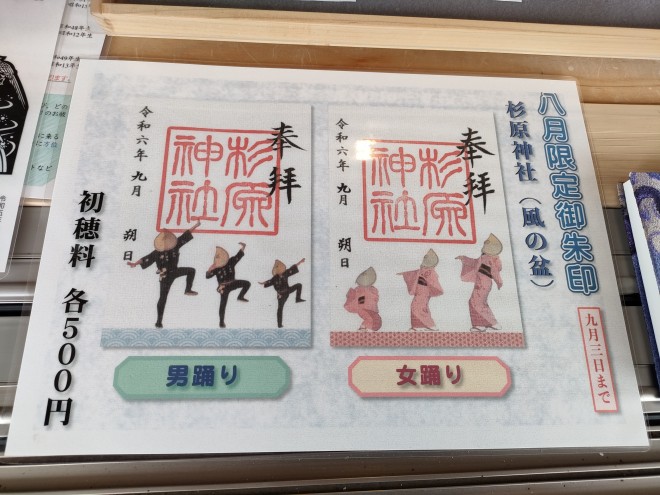 八月限定御朱印
杉原神社（風の盆）
九月三日まで
奉拝
杉原
神社
令和六年 九月 朔日
女踊り
奉拝
杉原
神社
令和六年 九月 朔日
男踊り
初穂料 各500円